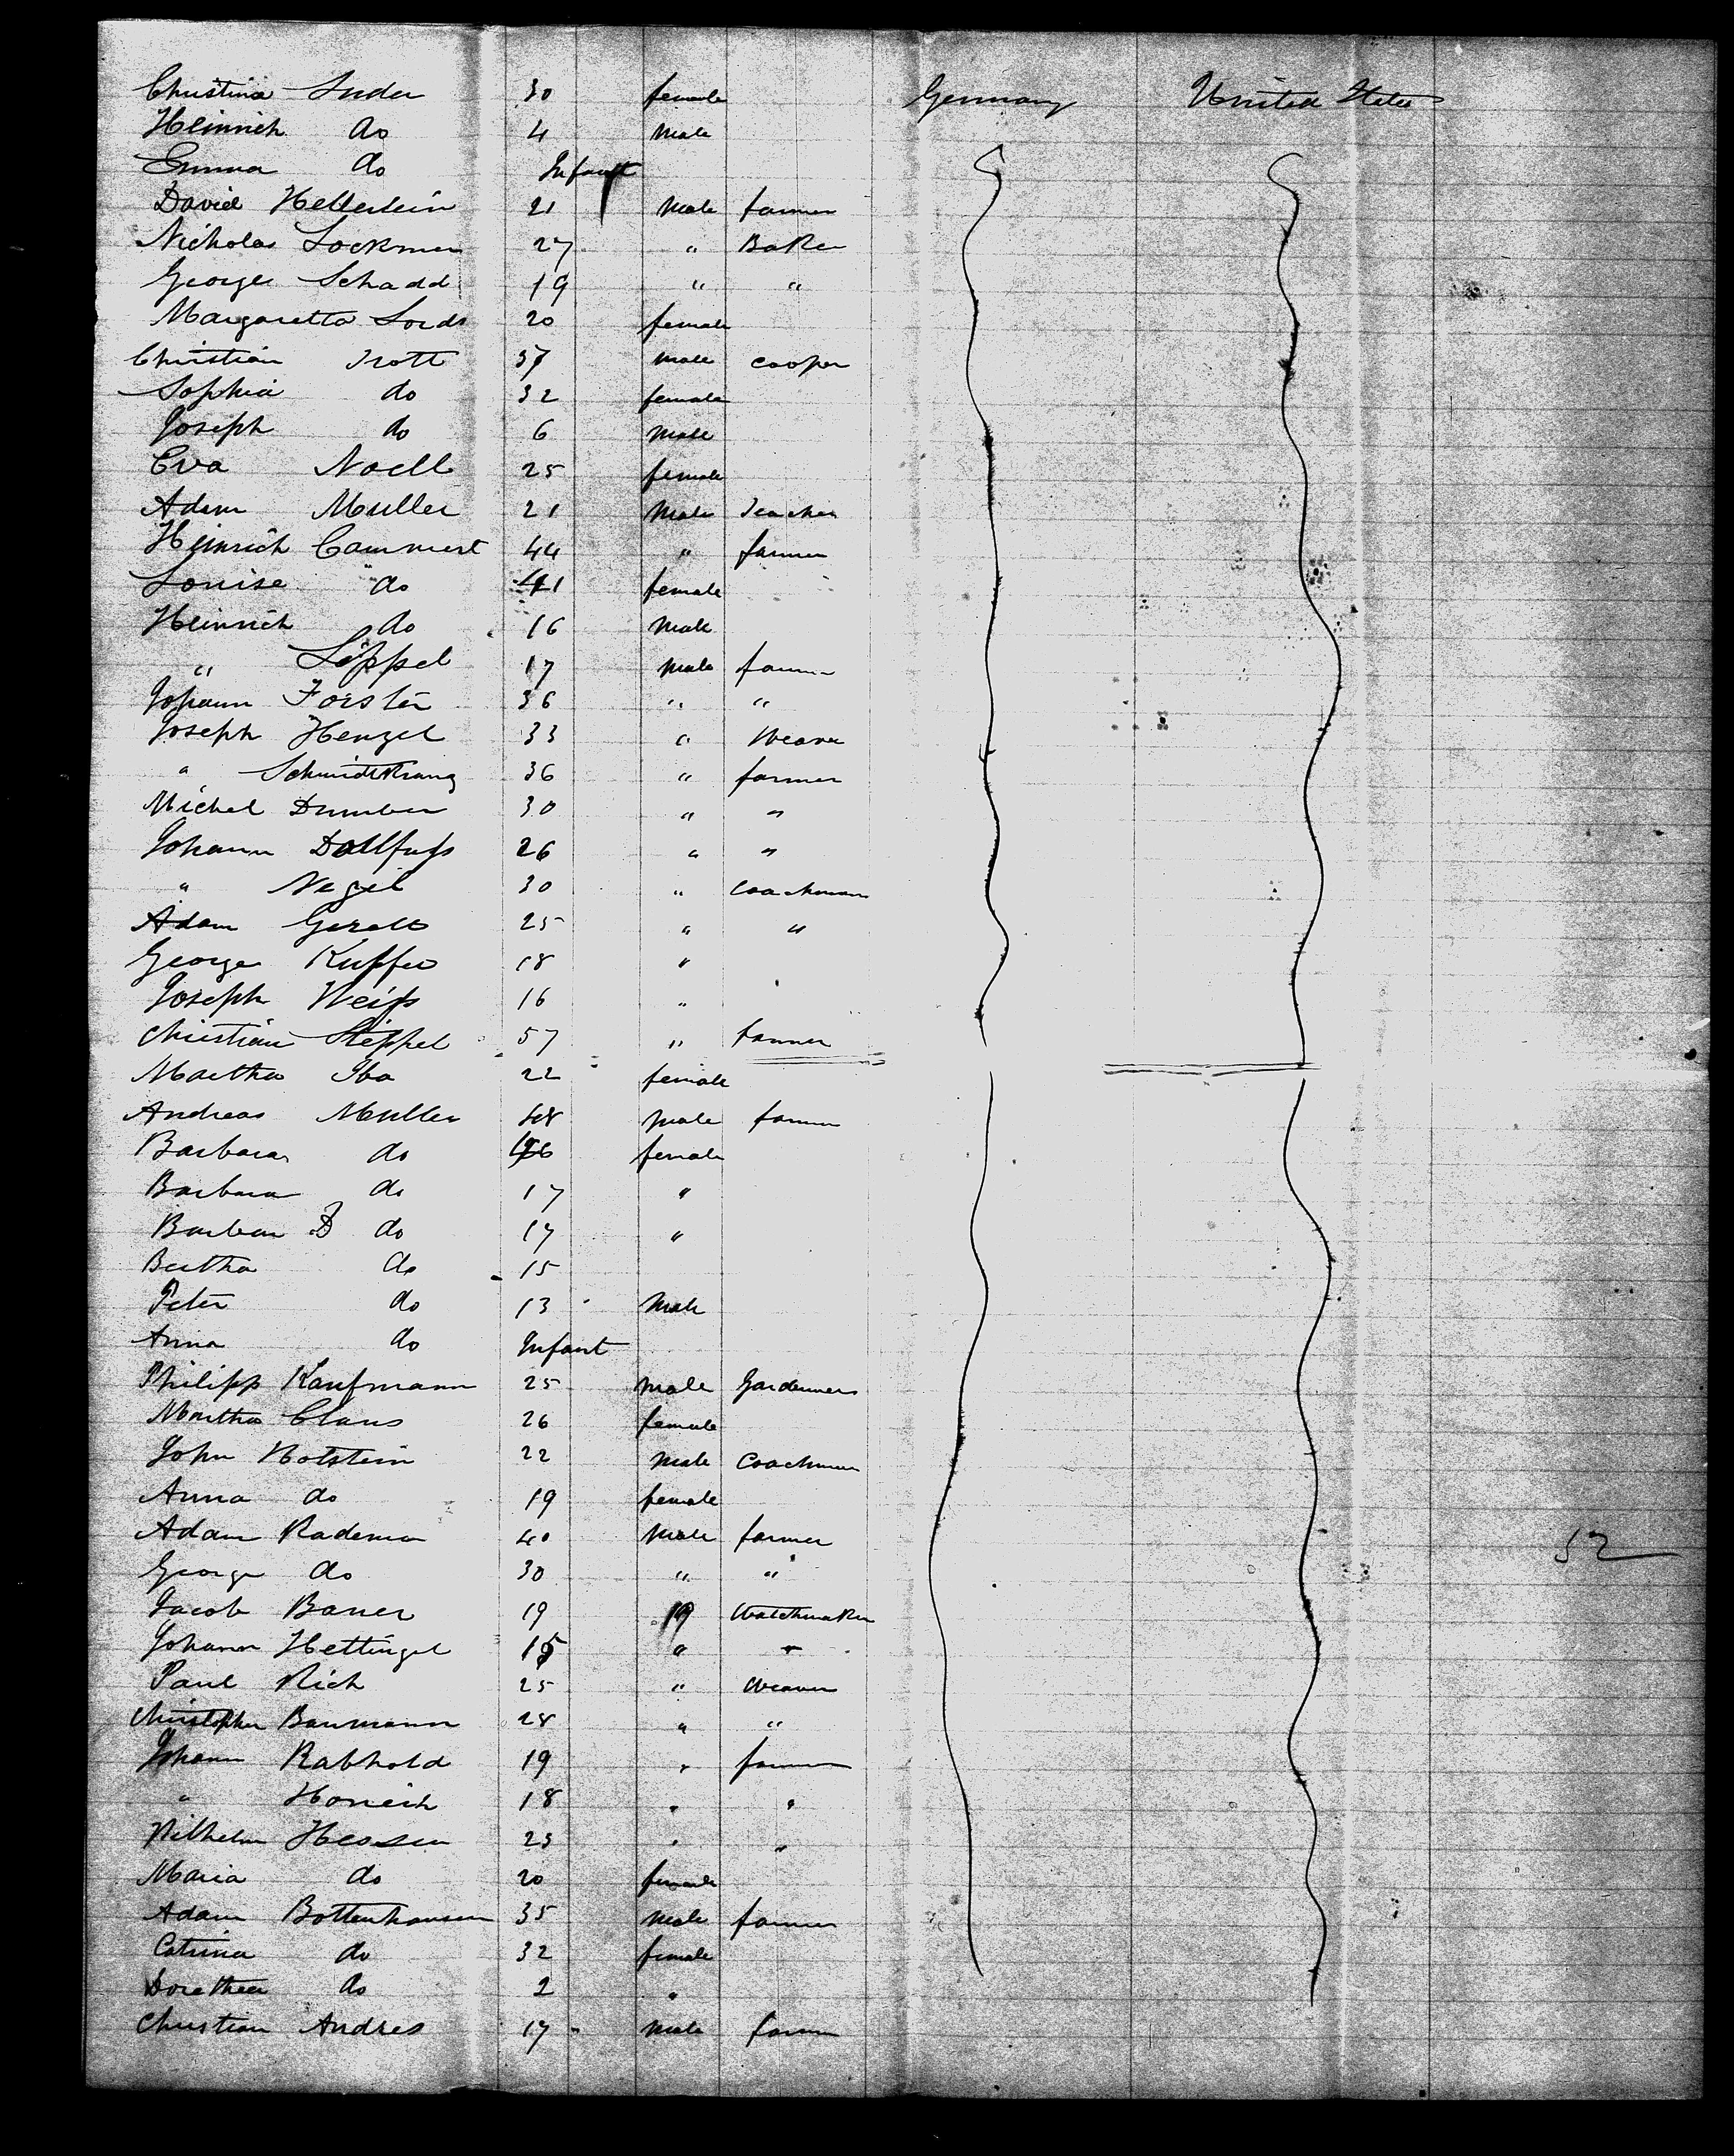 Christina Suder 30 female Germany United States
Heinrich do 4 Male
Emma do Infant
David Hellerstein 21 Male farmer
Nicholas Lockman 27 " Baker
George Schadd 19 " "
Margaretta Lords 20 female
Christian Trott 37 Male cooper
Sophia do 32 female
Joseph do 6 Male
Eva Noell 25 female
Adam Muller 21 Male Teacher
Heinrich Cammert 44 " farmer
Louise do 41 female
Heinrich do 16 Male
" Lippel 17 Male farmer
Johann Forster 36 " "
Joseph Henzel 33 " Weaver
" 36 " farmer
Michel 30 " "
Johann Dollfuſs 26 " "
" Negel 30 " Coachman
Adam 25 " "
George Kuffer 18 "
Joseph Weiſs 16 "
Christian Steppel 57 " farmer
Martha Iba 22 female
Andreas Muller 48 Male farmer
Barbara do 46 female
Barbara do 17 "
Barbara D do 17 "
Bertha do 15
Peter do 13 Male
Anna do Infant
Philipp Kaufmann 25 Male Gardeners
Martha Claus 26 female
John Hotstein 22 Male Coachman
Anna do 19 female
Adam Rademer 40 Male farmer 52
George do 30 " "
Jacob Bauer 19 19 Watchmaker
Johann Hettingel 15 " "
Paul Rich 25 " Weaver
Christopher Baumann 28 " "
Johann Rabhold 19 " farmer
" 18 " "
Wilhelm 23 " "
Maria do 20 female
Adam Bottenhausen 35 Male farmer
Catrina do 32 female
Dorethea do 2 "
Christian Andres 17 Male farmer